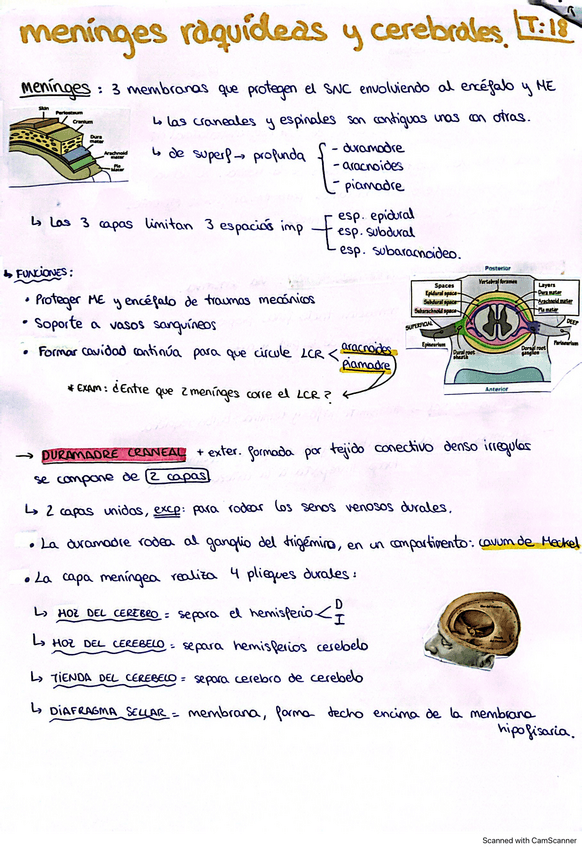 meninges raquídeas y cerebrales. T:18
Meninges : 3 membranas que protegen el SNC envolviendo al encéfalo y ME
↳ Las craneales y espinales son contiguas unas con otras.
Skin
Periosteum
Cranium
Dura mater
Arachnoid mater
Pia Mater
↳ de superf → profunda
- duramadre
- aracnoides
- piamadre
↳ Las 3 capas limitan 3 espacios imp
esp. epidural
esp. subdural
esp. subaracnoideo.
↳ FUNCIONES:
• Proteger ME y encéfalo de traumas mecánicos
• Soporte a vasos sanguíneos
• Formar cavidad continúa para que circule LCR < aracnoides
piamadre
* EXAM: ¿Entre que 2 meninges corre el LCR?
Posterior
Vertebral foramen
Spaces
Epidural space
Subdural space
Subarachnoid space
Layers
Dura mater
Arachnoid mater
Pia mater
SUPERFICIAL
DEEP
Epineurium
Perineurium
Dorsal root sheath
Dorsal root ganglion
Anterior
→ DURAMADRE CRANEAL + exter. formada por tejido conectivo denso irregular
se compone de 2 capas
↳ 2 capas unidas, excp: para rodear los senos venosos durales.
• La duramadre rodea al ganglio del trigémino, en un compartimento: cavum de Meckel
• La capa meníngea realiza 4 pliegues durales:
↳ HOZ DEL CEREBRO = separa el hemisferio < D
I
↳ HOZ DEL CEREBELO = separa hemisferios cerebelo
↳ TIENDA DEL CEREBELO = separa cerebro de cerebelo
↳ DIAFRAGMA SELLAR = membrana, forma techo encima de la membrana
hipofisaria.
Scanned with CamScanner